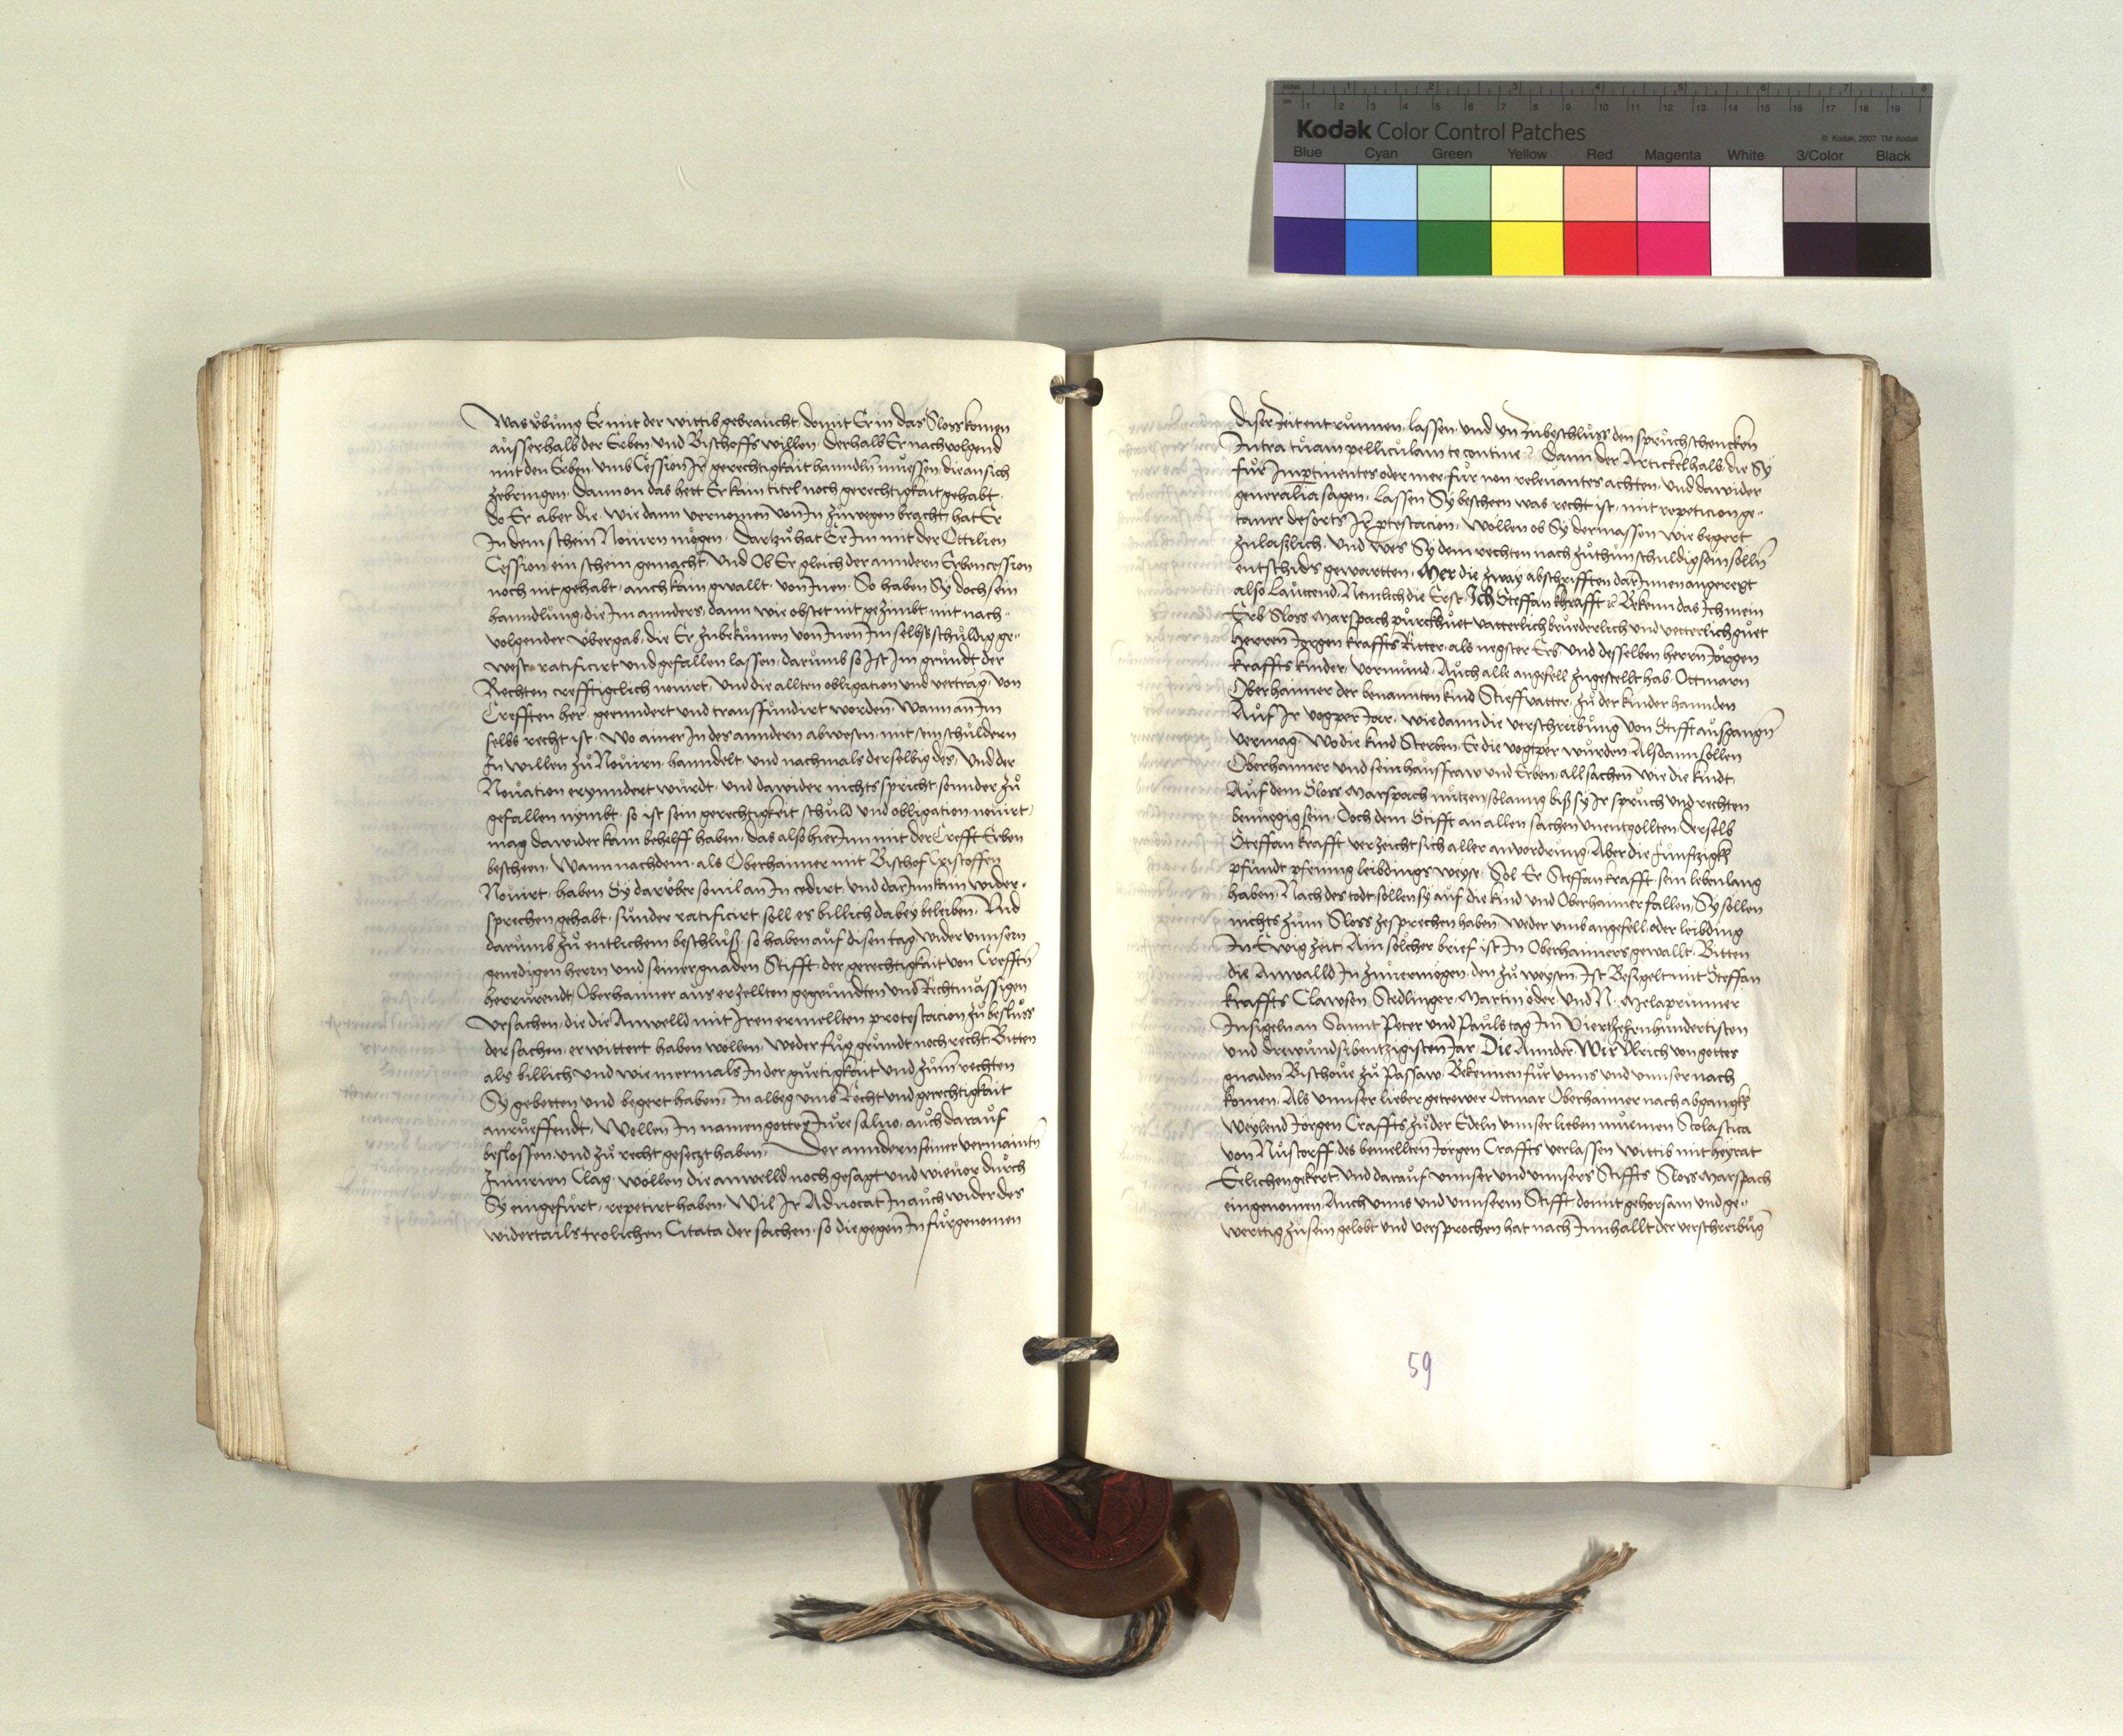 inches 1 2 3 4 5 6 7 8
cm 1 2 3 4 5 6 7 8 9 10 11 12 13 14 15 16 17 18 19
Kodak Color Control Patches
© Kodak, 2007 TM: Kodak
Blue Cyan Green Yellow Red Magenta White 3/Color Black
Was übung Er mit der wittib gebraucht, domit Er in das Sloss komen
ausserhalb der Erben und Bischoffs willen. derhalb Er nachvolgend
mit den Erben umb Cession Ir gerechtigkait hanndln muessen, die an sich
zebringen. dann on das hett Er kain titel noch gerechtigkait gehabt.
do Er aber die. wie dann vernomen von In zuwegen bracht, hat Er
In dem schein Novirn mögen. Dartzu hat Er Im mit der Ottilien
Cession ein schein gemacht, und Ob Er gleich der anndern Erben cession
noch nit gehabt. auch kain gwallt. von Inen. So haben Sy doch sein
hanndlung, die Im annders, dann wie obstet nit gezimbt mit nach-
volgender übergab, die Er zubekumen von Inen Im selbs schuldig ge-
west, ratificirt und gefallen lassen, darumb so Ist Im grundt der
Rechten crefftigclich novirt, Und die allten obligation und vertrag von
Crefften her. geenndert und transfundirt worden. Wann an Im
selbs recht ist. Wo ainer In des anndern abwesen, mit sein schuldern
In willen zu Novirn, hanndelt und nachmals derselbig des, Und der
Novation erynndert wurdt. und dawider nichts spricht sonnder zu
gefallen nymbt. so ist sein gerechtigkeit schuld und obligation novirt,
mag dawider kain behelff haben, das also hierInn mit der Crefft Erben
bescheen. Wann nachdem. als Oberhaimer mit Bischof Cristoffen
Novirt, haben Sy darüber sovil an In cedirt, und darInn kain wider-
sprechen gehabt. sunder ratificirt, soll es billich dabey beleiben. Und
darumb zu entlichem beschluß, so haben auf disen tag, wider unnsern
genedigen herrn und seiner gnaden Stifft, der gerechtigkait von Crefften
herrurendt, Oberhaimer aus erzellten gegrundten und Rechtmässigen
Ursachen, die die Anwelld mit Iren ermellten protestacion zu besluss
der sachen, erwittert haben wöllen, weder fug grundt noch recht, Bitten
als billich und wie mermals In der guetigkait und zum rechten
Sy gebetten und begert haben, In albeg umb Recht und gerechtigkait
anrueffendt, Wöllen In namen gottes Iure saluo, auch darauf
beslossen, und zu recht gesetzt haben. Der anndern seiner vermainten
Iniurien Clag, wöllen die anwelld noch gesagt und wievor durch
Sy eingefurt, repetirt haben, Wil Ir Advocat In auch wider des
widertails trolichen Citata der sachen, so die gegen In furgenomen
diser Zeit entrunnen, lassen, und Im zu beschluss den spruch schencken
Intra tuam pelliculam te contine. Dann der Artickel halb, die Sy
fur Inpertinentes oder mer, fur non relevantes achten, und dawider
generalia sagen, lassen Sy bescheen was recht ist, mit repeticion ge-
taner desorts Ir protestacion, Wöllen ob Sy dermassen wie begert
zulaßlich, Und wes Sy dem rechten nach zuthun schuldig sein solln
entschids gewartten. Mer die zway abschrifften darInnen angeregt
also Lautend, Nemlich die Erst. Ich Steffan khrafft etc Bekenn das Ich mein
Erb Sloss Marspach purckhuet vatterlich bruederlich und vetterlich guet
herren Jorgen kraffts Ritter, als negster Erb und desselben herrn Jörgen
kraffts kinder, vormund. Auch alle angefell zugestellt hab Ottmarn
Oberhaimer der benannten kind Stieff vatter. zu der kinder hannden
Auf Ir vogper Jar. wie dann die verschreibung von Stifft ausgangn
vermag. Wo die kind Sterben, Ee die vogtper wurden, Alsdann sollen
Oberhaimer und sein hausfraw und Erben, all sachen wie die kindt,
Auf dem Sloss Marspach nutzen solanng biß sy Ir spruch und rechten
benuegig sein. Doch dem Stifft an allen sachen unentgollten. Derselb
Steffan krafft verzeicht sich aller anvordrung. Aber die Funftzigkh
pfundt pfening leibdings weyse, Sol Er Steffan krafft, sein lebenlang
haben, Nach des todt, sollen sy auf die kind und Oberhaimer fallen, Sy sollen
nichts zum Sloss zesprechen haben, weder umb angefell oder leibding
In Ewig zeit, Ain solcher brief ist In Oberhaimers gewallt. Bitten
die Anwalld In zuvermögen, den zu weysen, Ist Besigelt mit Steffan
kraffts Clawsen Sedlinger, Martin öder Und N. Melaprunner
Insigeln an Sannt Peter und Pauls tag Im Viertzehenhundertisten
und drewundsibentzigisten Jar. Die Annder. Wir Ulrich von gottes
gnaden Bischove zu Passaw. Bekennen fur unns und unnser nach
komen, Als unnser lieber getrewer Ottmar Oberhaimer nach abgangkh
Weylend Jörgen Craffts, zu der Edeln unnser lieben muemen Scolastica
von Nustorff, des bemellten Jörgen Craffts verlassen wittib mit heyrat
Erlichen gekert, Und darauf unnser und unnsers Stiffts Sloss Marspach
eingenomen, Auch unns und unnserm Stifft, domit gehorsam und ge-
werttig zu sein gelobt und versprochen hat nach Innhallt der verschreibung
59